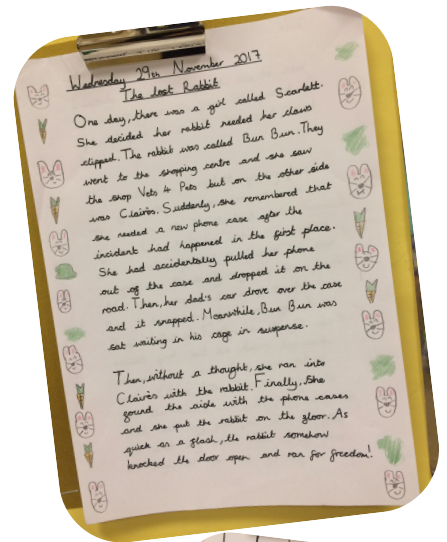 Wednesday 29th November 2017
The Lost Rabbit
One day, there was a girl called Scarlett.
She decided her rabbit needed her claws
clipped. The rabbit was called Bun Bun. They
went to the shopping centre and she saw
the shop Vets 4 Pets but on the other side
was Claires. Suddenly, she remembered that
she needed a new phone case after the
incident had happened in the first place.
She had accidentally pulled her phone
out of the case and dropped it on the
road. Then, her dad's car drove over the case
and it snapped. Meanwhile, Bun Bun was
sat waiting in his cage in suspense.
Then, without a thought, she ran into
Claires with the rabbit. Finally, she
found the aisle with the phone cases
and she put the rabbit on the floor. As
quick as a flash, the rabbit somehow
knocked the door open and ran for freedom!